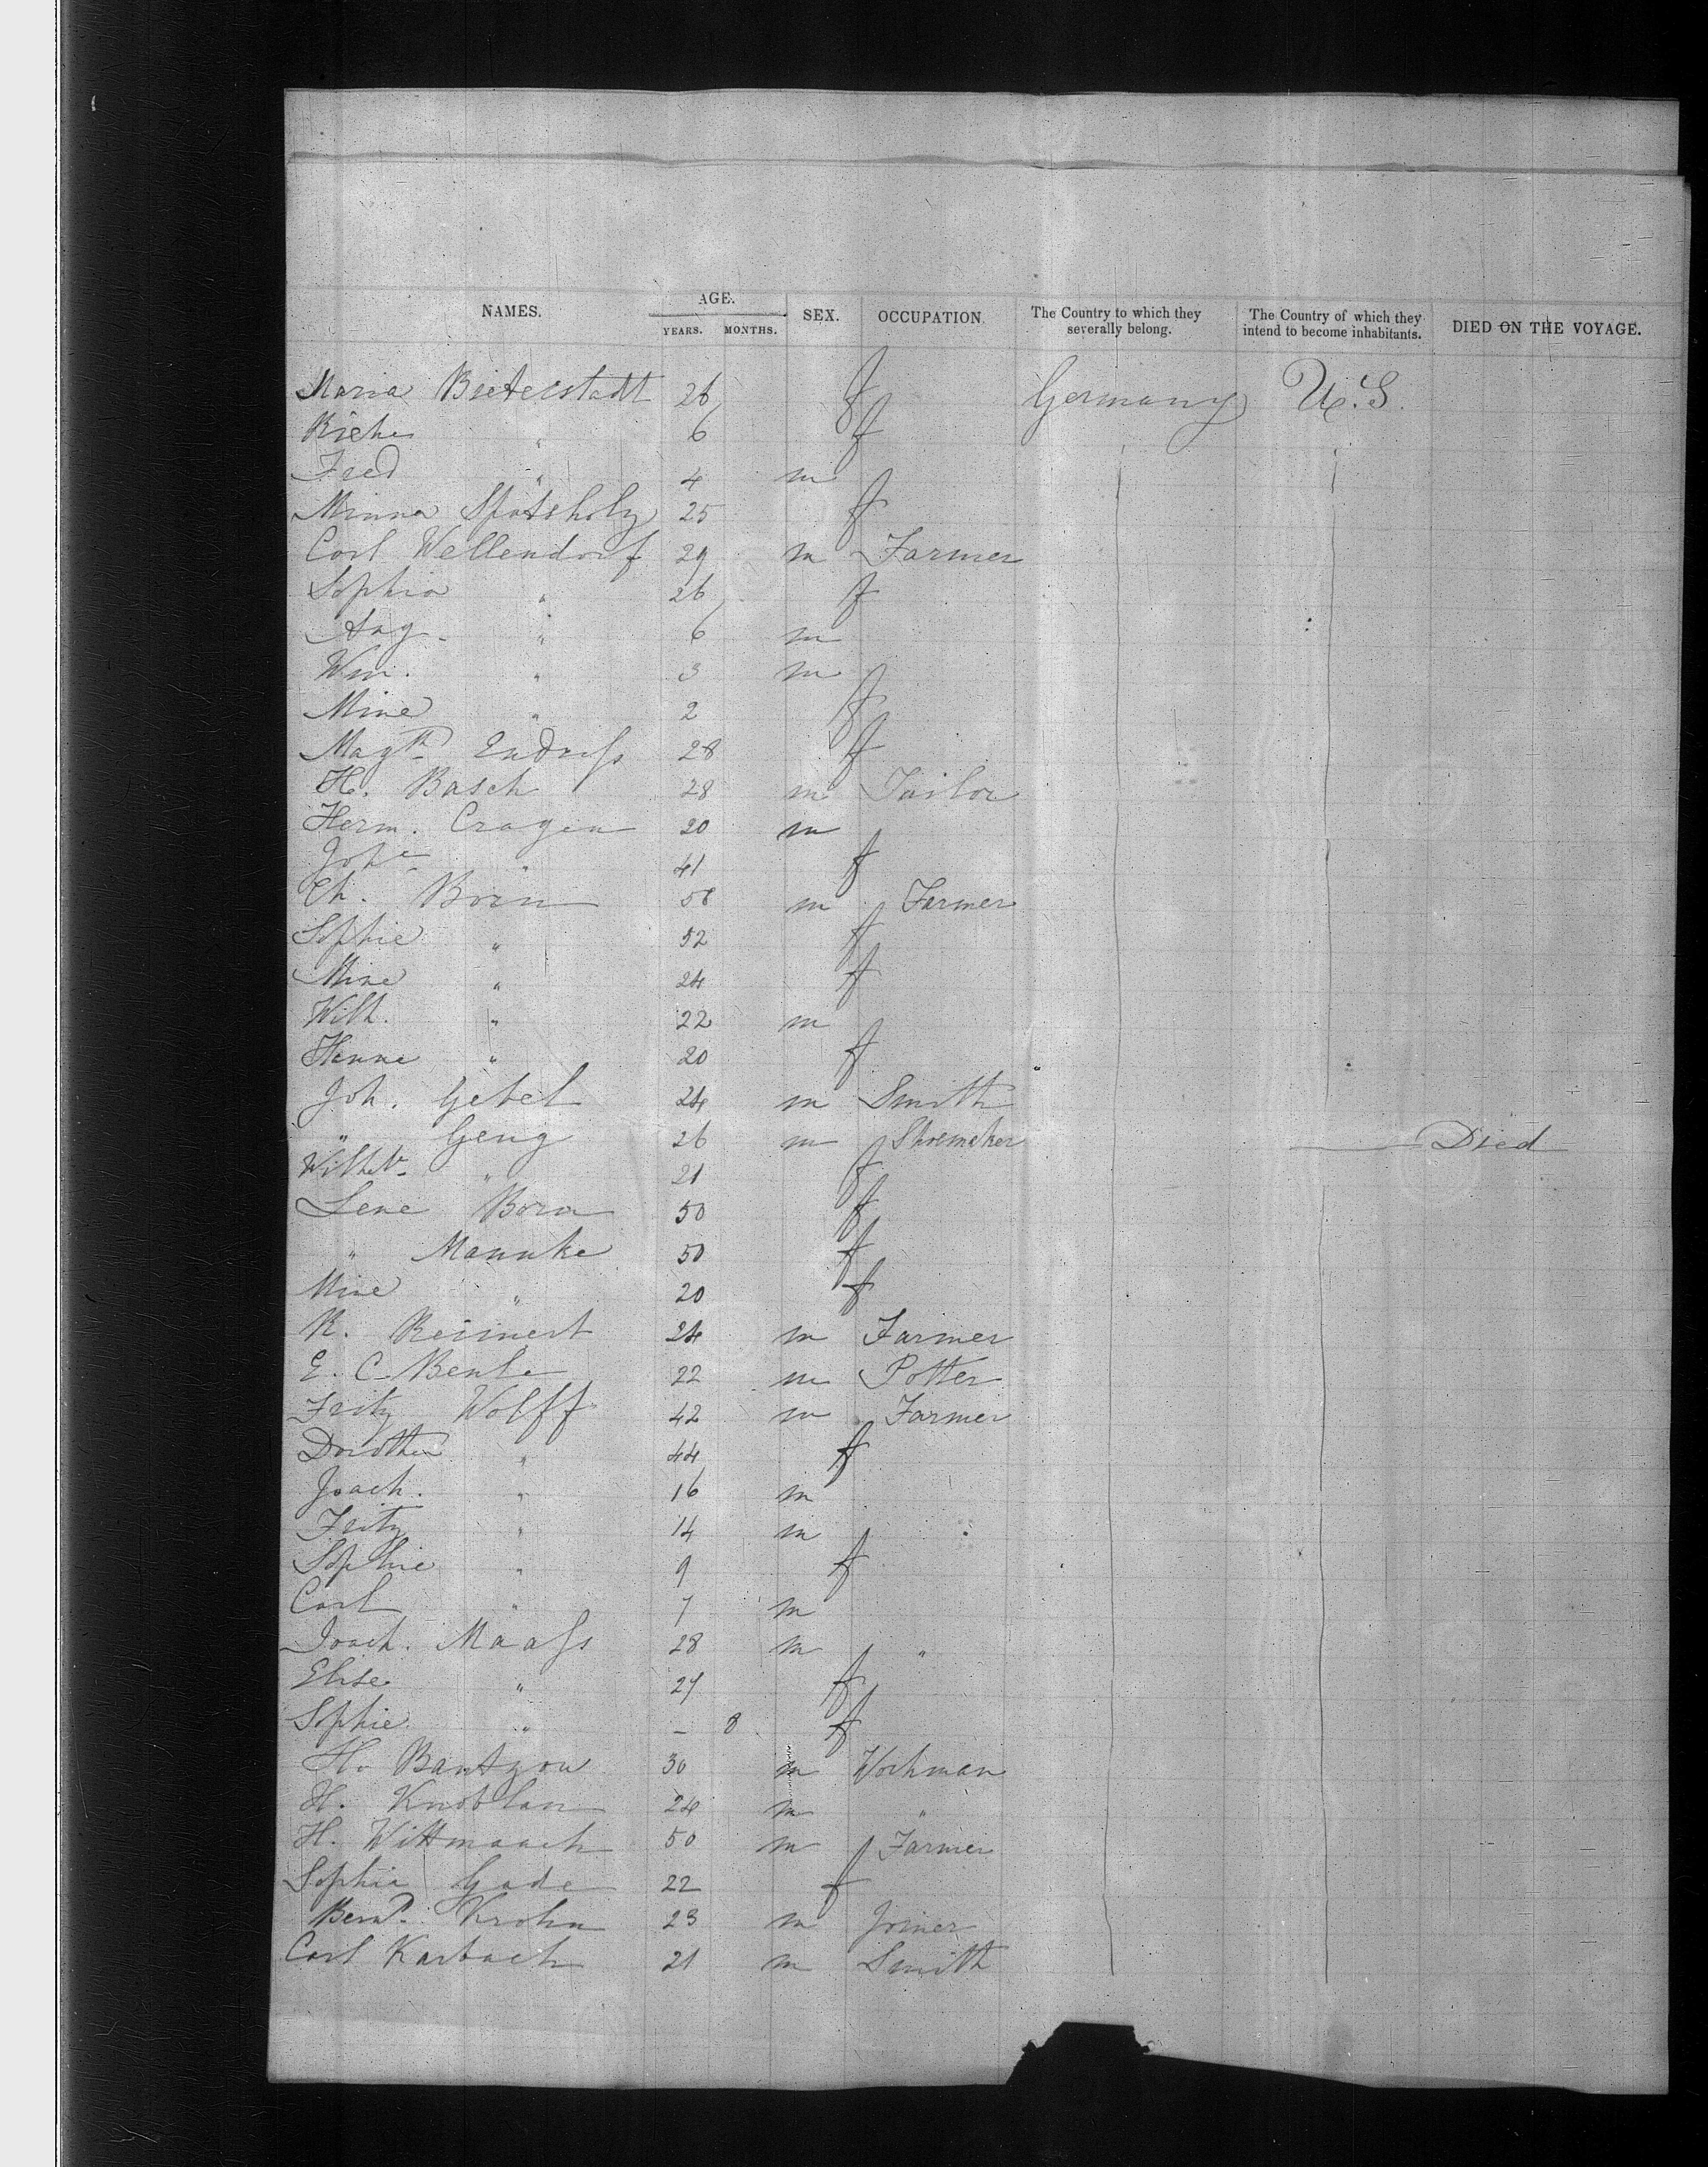 NAMES. AGE. YEARS. MONTHS. SEX. OCCUPATION. The Country to which they severally belong. The Country of which they intend to become inhabitants. DIED ON THE VOYAGE.
Maria 26 f Germany U.S.
" 6 f
Fred " 4 m
Minna 25 f
Carl Wellendorf 29 m Farmer
Sophia " 26 f
Aug. " 6 m
Wm. " 3 m
Mine " 2 f
Endress 28 f
H. Basch 28 m Tailor
Herm. Cragen 20 m
" 41 f
Ch. m Farmer
Sophie " 52 f
Mine " 24 f
Wilh. " 22 m
Hanne " 20 f
Joh. Gebel 24 m Smith
" Geng 26 m Shoemaker Died
" 21 f
Lene Born 50 f
" Mannke 50 f
Mine " 20 f
R. Reimert 24 m Farmer
E. C. 22 m Potter
Fritz Wolff 42 m Farmer
Dorothea " 44 f
Joach. " 16 m
Fritz " 14 m
Sophie " 9 f
Carl " 7 m
Joach. Maass 28 m "
Elise " 27 f
Sophie " – 8 f
H. Bantzow 30 m Workman
H. 24 m "
H. Wittmaack 50 m Farmer
Sophia Gade 22 f
Bernd. Krohn 23 m Joiner
Carl Karbach 21 m Smith